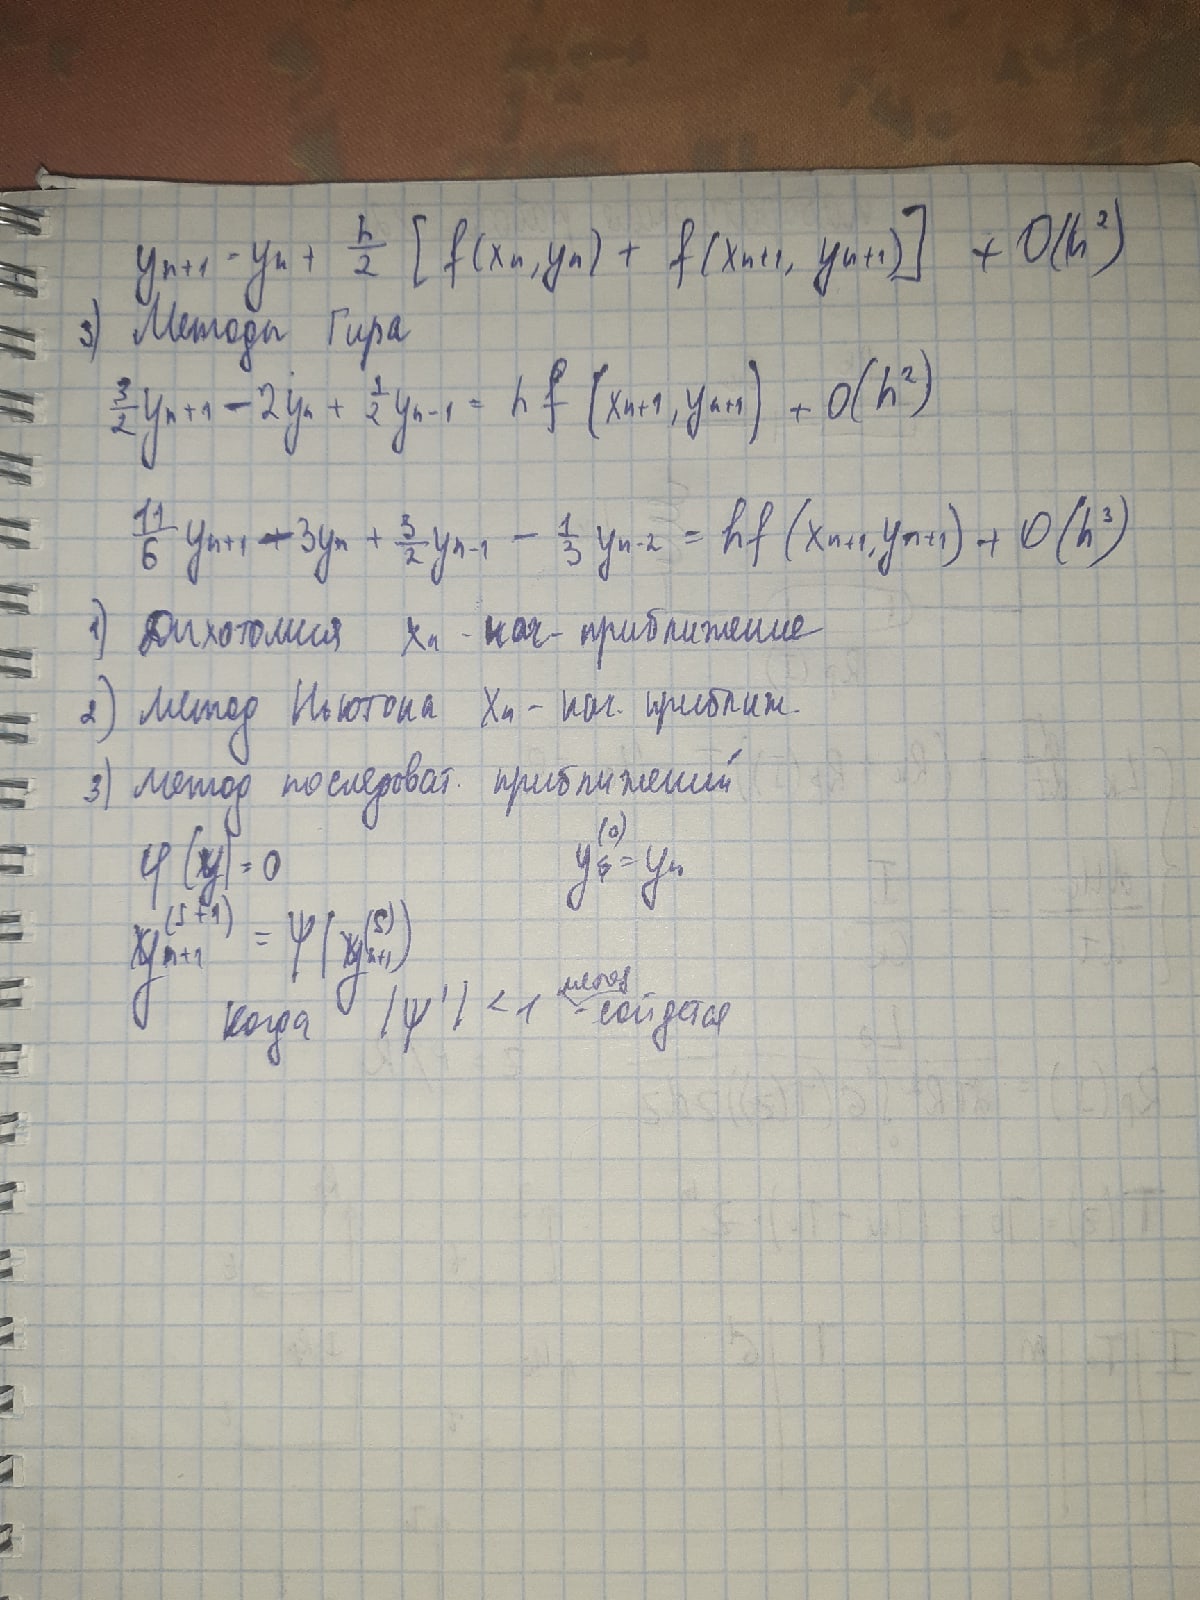 y_{n+1} = y_n + h/2 [f(x_n, y_n) + f(x_{n+1}, y_{n+1})] + O(h²)
3) Методы Гира
3/2 y_{n+1} - 2y_n + 1/2 y_{n-1} = hf(x_{n+1}, y_{n+1}) + O(h²)
11/6 y_{n+1} - 3y_n + 3/2 y_{n-1} - 1/3 y_{n-2} = hf(x_{n+1}, y_{n+1}) + O(h³)
1) Дихотомия x_n - нач- приближение
2) Метод Ньютона x_n - нач. приближ.
3) метод последоват. приближений
φ(y) = 0 y^{(0)} = y_n
y_{n+1}^{(s+1)} = ψ(y_{n+1}^{(s)})
Когда |ψ'| < 1 метод - сойдется